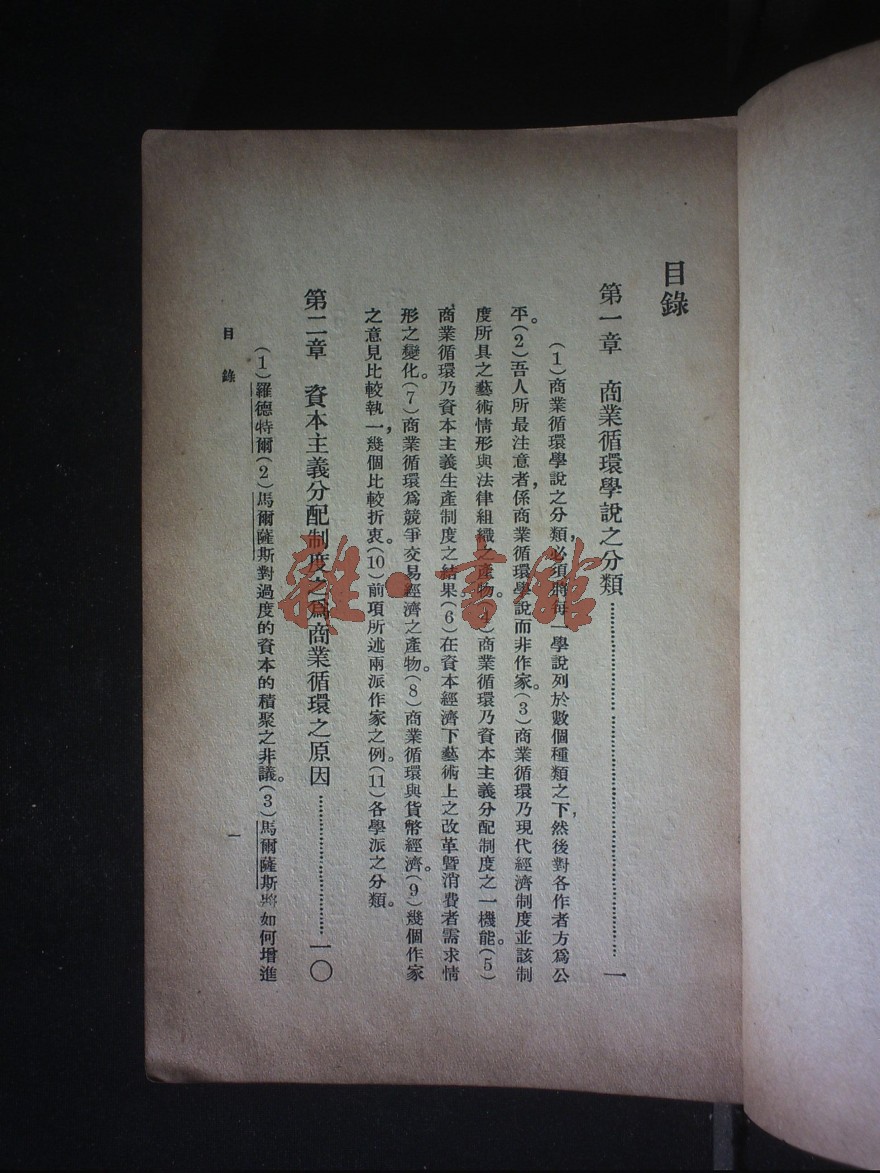 目錄
第一章　商業循環學說之分類…………………………一
(1)商業循環學說之分類,必須將每一學說列於數個種類之下,然後對各作者方爲公
平。(2)吾人所最注意者,係商業循環學說而非作家。(3)商業循環乃現代經濟制度並該制
度所具之藝術情形與法律組織之產物。(4)商業循環乃資本主義分配制度之一機能。(5)
商業循環乃資本主義生產制度之結果。(6)在資本經濟下藝術上之改革暨消費者需求情
形之變化。(7)商業循環爲競爭交易經濟之產物。(8)商業循環與貨幣經濟。(9)幾個作家
之意見比較執一,幾個比較折衷。(10)前項所述兩派作家之例。(11)各學派之分類。
第二章　資本主義分配制度之爲商業循環之原因…………………一〇
(1)羅德特爾(2)馬爾薩斯對過度的資本的積聚之非議。(3)馬爾薩斯 如何增進
目錄
一
雜·書館